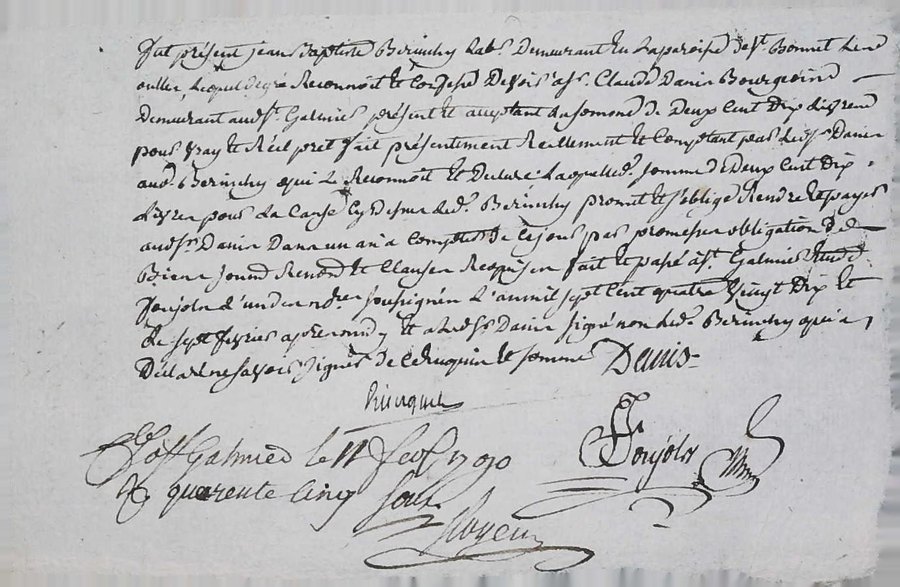 fut présent jean Baptiste Berinchy Lab.r Demeurant en la paroisse de S.t Bonnet
oulles, Lequel de gré a Reconnoit et Confessé Devoir a S.r Claude Denis Bourgeois
Demeurant aud. S.t Galmier présent et acceptant La somme de Deux Cent Dix Livres
pour vray et Réel pret fait présentement Reellement et Comptant par Led. S.r Denis
aud. Berinchy qui Le Reconnoit et Declare Laquelle d. somme de Deux Cent Dix
Livres pour La Cause Cy Dessus Led. Berinchy promet et s'oblige Rendre et payer
aud. S.r Denis Dans un an a Compter de Ce jour par promesse obligation de
Biens Soumd Renond et Clauses Requises fait et passé a S.t Galmier Etude
Ponjols L'un des n.res soussignés L'an mil sept Cent quatre vingt Dix et
Le sept fevrier apres midy et a Led. S.r Denis signé non Led. Berinchy qui a
Déclaré ne savoir signer de Ce Enquis et sommé Denis
Ponjols
C.lé a S.t Galmier le 11 fevr. 1790
R. quarente Cinq sous